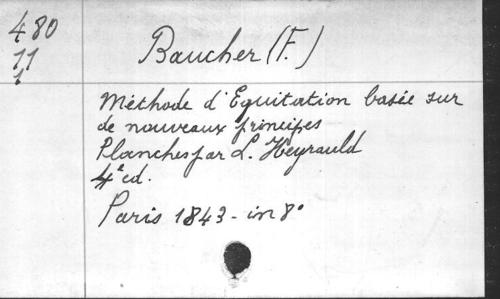 480
11
1
Baucher (F.)
Méthode d'Equitation basée sur
de nouveaux principes
Planches par L. Heyrauld
4e ed.
Paris 1843 - in 8°